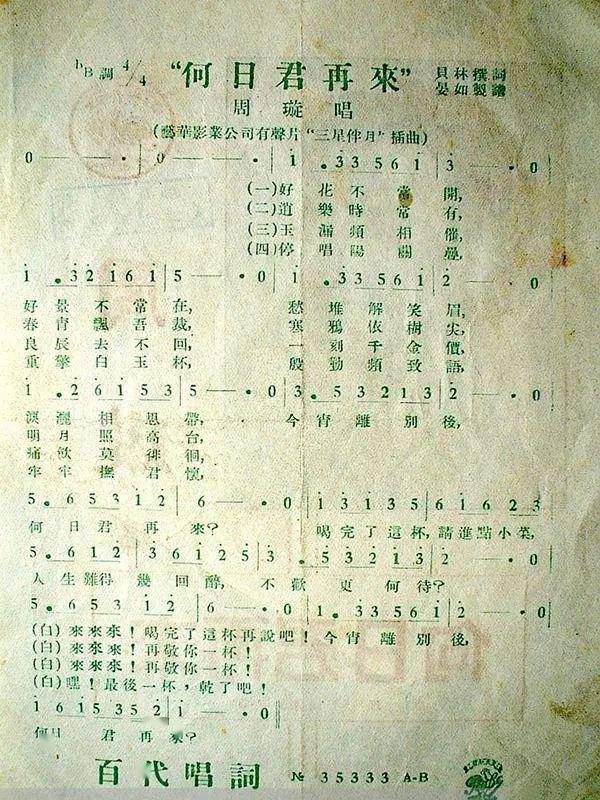 bB調 4/4 "何日君再來" 貝林撰詞
晏如製譜
周璇唱
(藝華影業公司有聲片"三星伴月"插曲)
0 — — ·0 — ·0 1 .3 3 5 6 1 3 — ·0
(一)好花不常開,
(二)道樂時常有,
(三)玉漏頻相催,
(四)停唱陽關疊,
1 .3 2 1 6 1 5 — ·0 1 .3 3 5 6 1 2 — ·0
好景不常在, 愁堆解笑眉,
春青飄吾裁, 寒鴉依樹尖,
良辰去不回, 一刻千金價,
重擎白玉杯, 殷勤頻致語,
1 .2 6 1 5 3 5 — ·0 3 .5 3 2 1 3 2 — ·0
淚灑相思帶, 今宵離別後,
明月照高台,
痛飲莫徘徊,
牢牢撫君懷,
5 .6 5 3 1 2 6 — ·0 1 3 1 3 5 6 1 6 2 3
何日君再來? 喝完了這杯,請進點小菜,
5 .6 1 2 3 6 1 2 3 3 .5 3 2 1 3 2 — ·0
人生難得幾回醉, 不歡更何待?
5 .6 5 3 1 2 6 — ·0 1 .3 3 5 6 1 2 — ·0
(白)來來來!喝完了這杯再說吧! 今宵離別後,
(白)來來來!再敬你一杯!
(白)來來來!再敬你一杯!
(白)嘿!最後一杯,乾了吧!
1 6 1 5 3 5 5 2 1 — ·0
何日君再來?
百代唱詞 № 35333 A-B